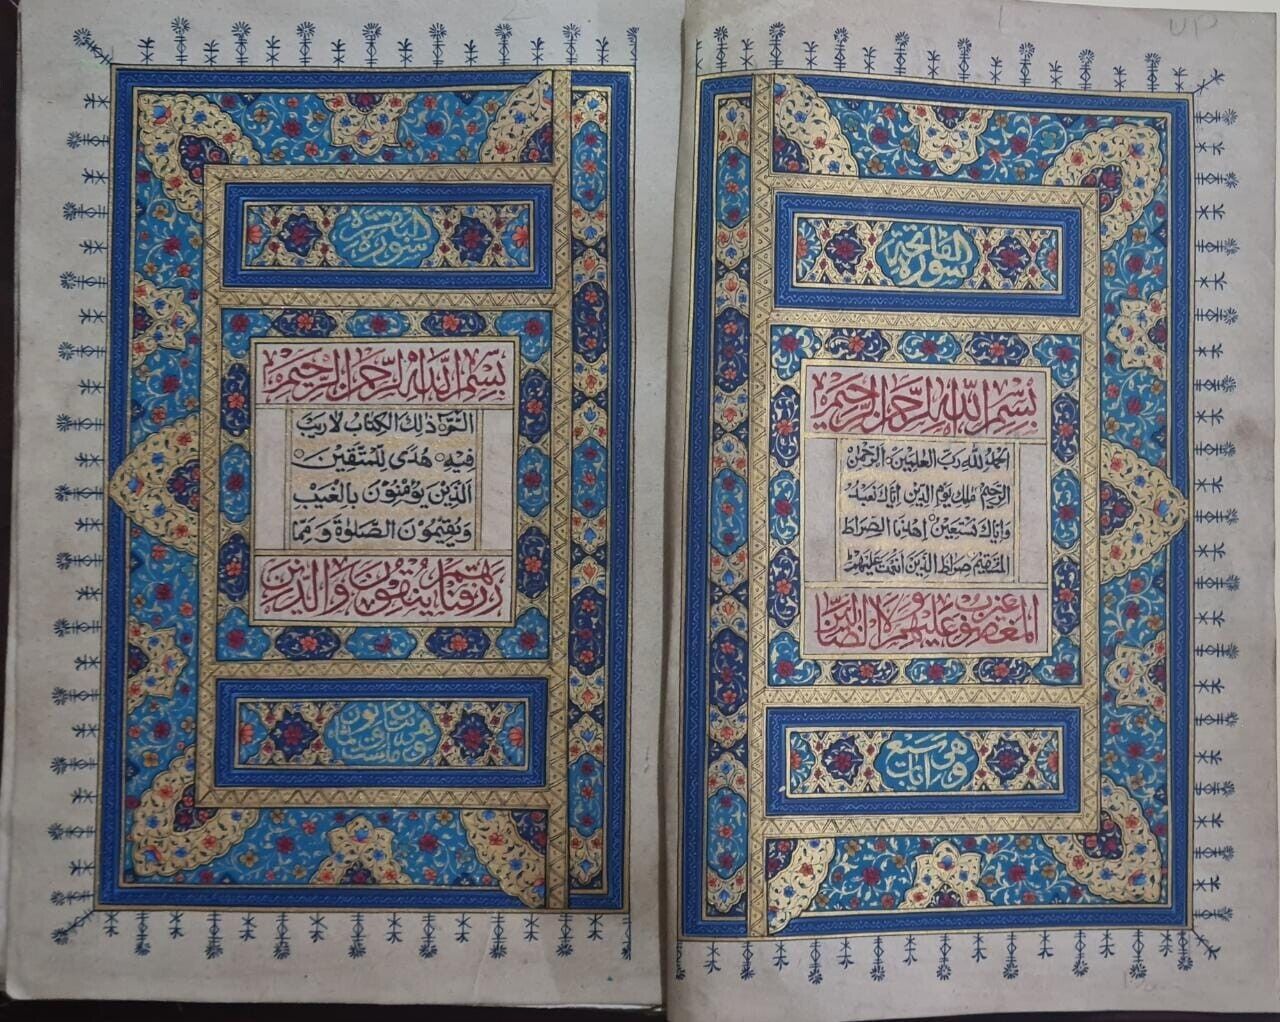 سورة الفاتحة
بسم الله الرحمن الرحيم
الحمد لله رب العلمين الرحمن
الرحيم ملك يوم الدين اياك نعبد
واياك نستعين اهدنا الصراط
المستقيم صراط الذين انعمت عليهم
غير المغضوب عليهم ولا الضالين
وهي سبع ايات
سورة البقرة
بسم الله الرحمن الرحيم
الم ذلك الكتاب لا ريب
فيه هدى للمتقين
الذين يؤمنون بالغيب
ويقيمون الصلوة ومما
رزقناهم ينفقون والذين